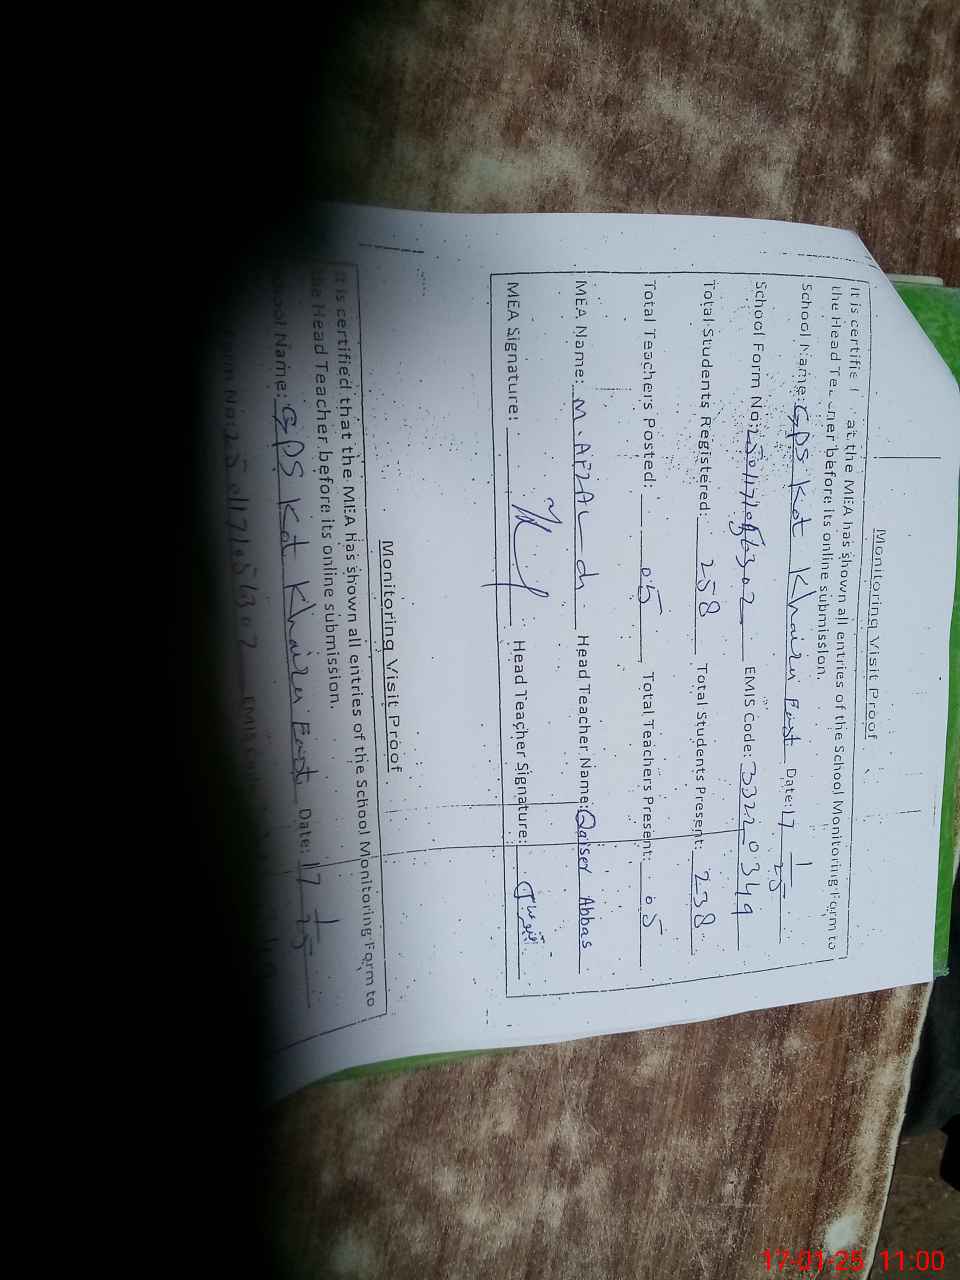 Monitoring Visit Proof
It is certified that the MEA has shown all entries of the School Monitoring Form to
the Head Teacher before its online submission.
School Name: GPS Kot Khaira East Date: 17/1/25
School Form No: EMIS Code: 33220349
Total Students Registered: 258 Total Students Present: 238
Total Teachers Posted: 05 Total Teachers Present: 05
MEA Name: M. AFZAL Head Teacher Name: Qaiser Abbas
MEA Signature: Head Teacher Signature:
Monitoring Visit Proof
It is certified that the MEA has shown all entries of the School Monitoring Form to
the Head Teacher before its online submission.
School Name: GPS Kot Khaira East Date: 17/1/25
17-01-25 11:00